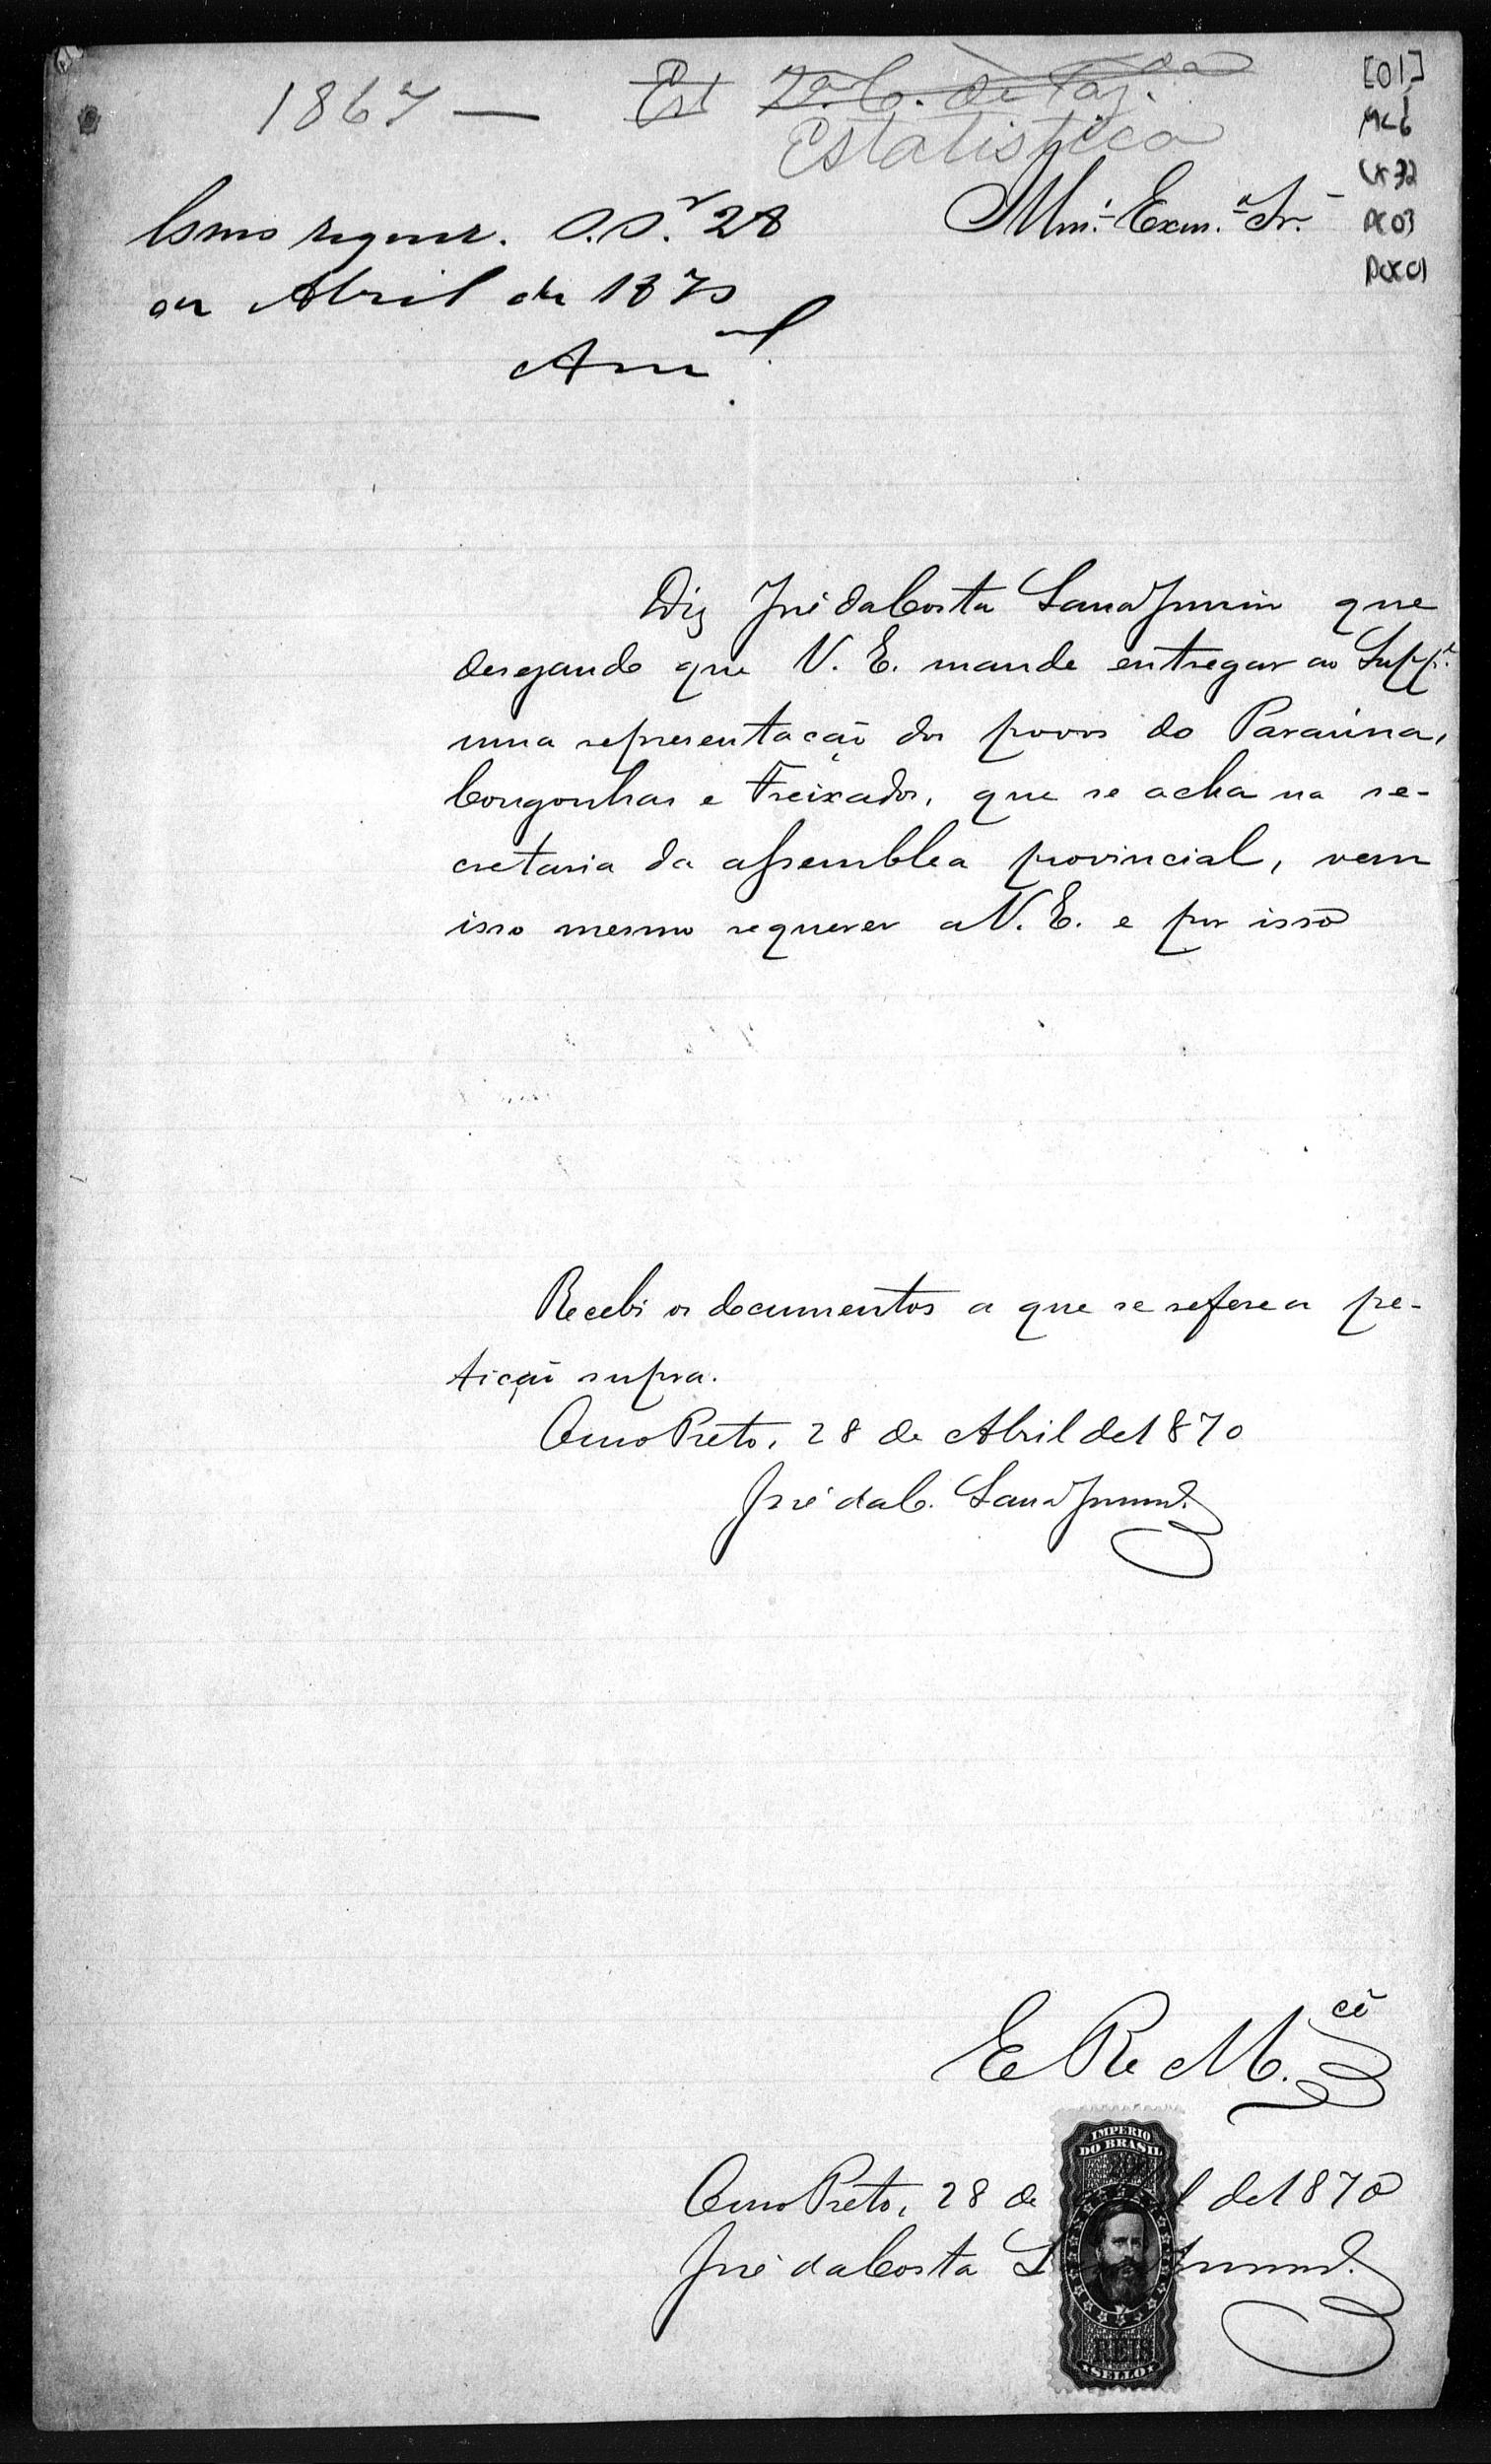 1867 — Est 2.ª C. de Faz.da
Estatistica
[01]
MC6
CX32
DC03
Como requer. O. P. 28
de Abril de 1870
Illm.º Exm.º Sr.
Diz José da Costa Sena Junior que
desejando que V. E. mande entregar ao Supp.e
uma representação dos povos do Paraúna,
Congonhas e Freixados, que se acha na se-
cretaria da assemblea provincial, vem
isso mesmo requerer a V. E. e por isso
Recebi os documentos a que se refere a pe-
tição supra.
Ouro Preto, 28 de Abril de 1870
José da C. Sena Junior
E. R. M.cê
IMPERIO
DO BRASIL
200
Ouro Preto, 28 de l de 1870
José da Costa S Junior
REIS
SELLO